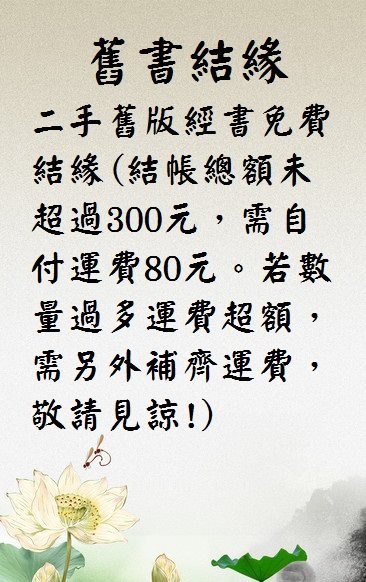 舊書結緣
二手舊版經書免費
結緣(結帳總額未
超過300元，需自
付運費80元。若數
量過多運費超額，
需另外補齊運費，
敬請見諒!)